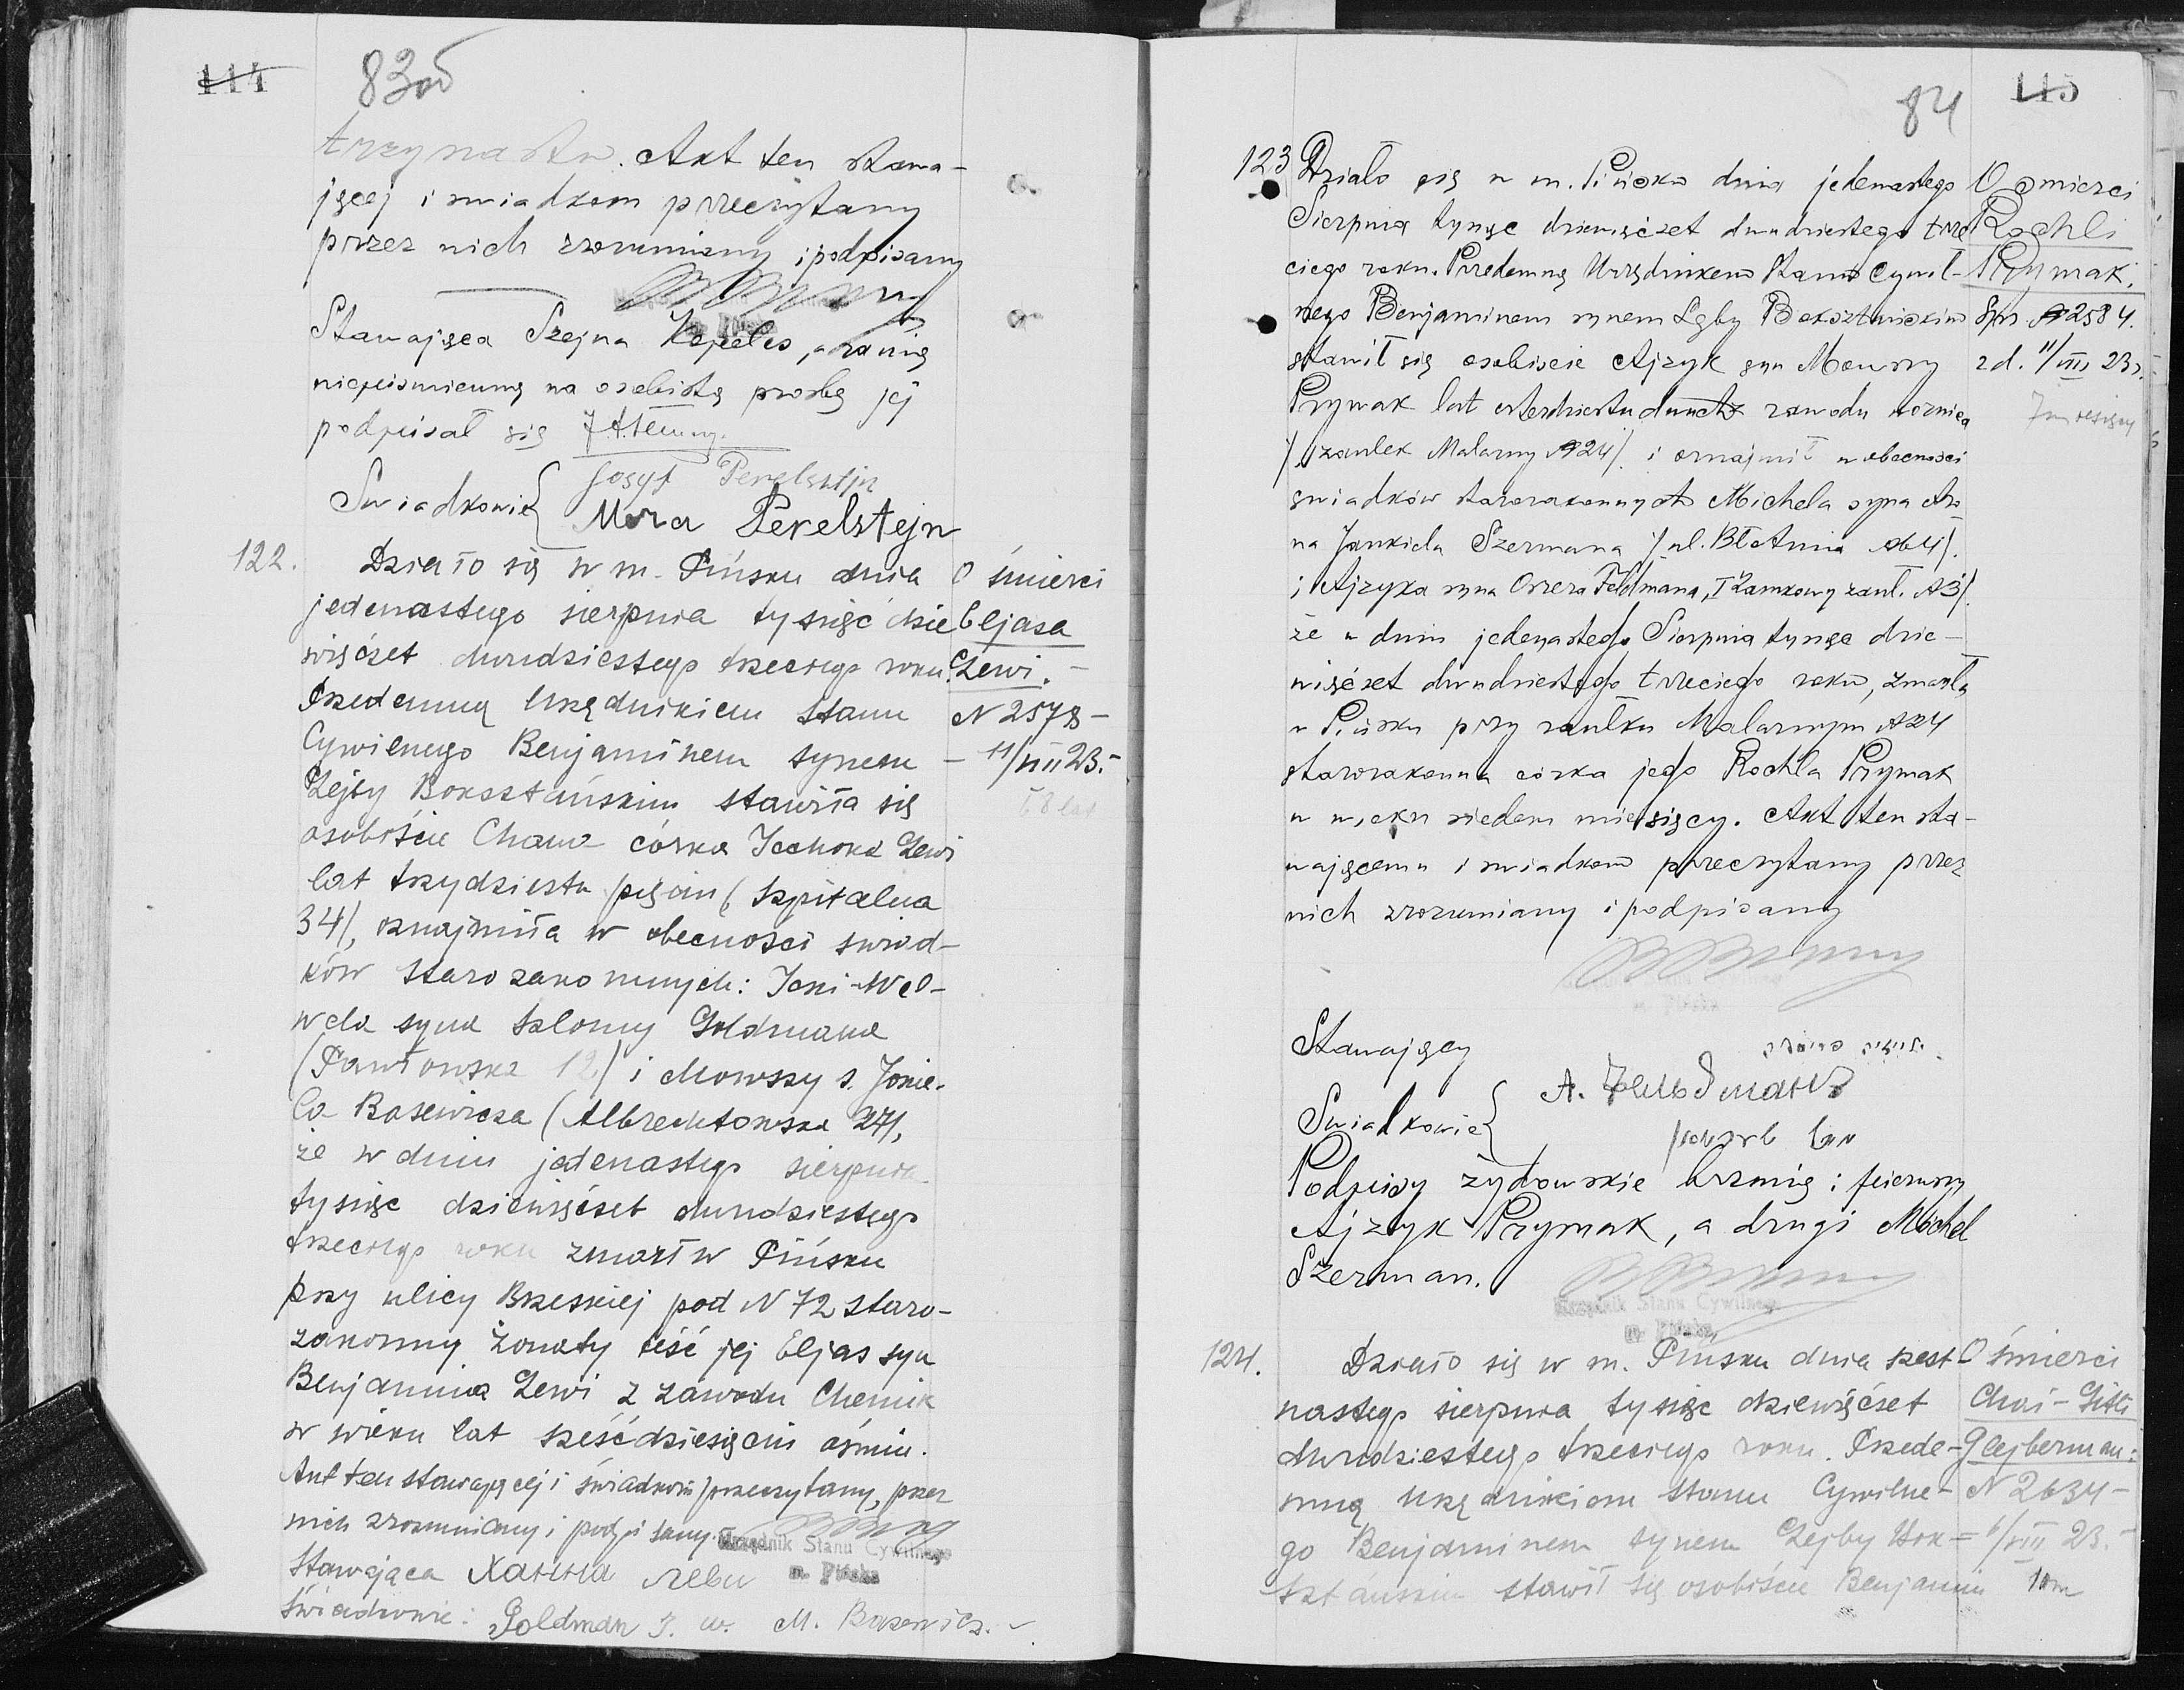 114
83об
trzynastu. Akt ten stawa-
jącej i swiadkom przeczytany
przez nich zrozumiany i podpisany
Stawająca Szejna Kapeles, a za nią
niepismienną na osobistą prosbę jej
podpisał się
Swiadkowie { Josyf Perelsztejn
Mera Perelstejn
122.
Działo się w m. Pińsku dnia
jedenastego sierpnia tysiąc dzie
więćset dwudziestego trzeciego roku.
Przedemną Urzędnikiem Stanu
Cywilnego Benjaminem synem
Lejby Boksztańskim stawiła się
osobiście Chana córka Lewi
lat trzydziestu pięciu (Szpitalna
34/, oznajmiła w obecności świad-
ków starozakonnych: Joni-Wel-
wela syna Szlomy Goldmana
(Pawłowska 12) i Mowszy s. Jonie-
la Basewicza (Albrechtowska 27/,
że w dniu jedenastego sierpnia
tysiąc dziewięćset dwudziestego
trzeciego roku zmarł w Pińsku
przy ulicy Brzeskiej pod N 72 staro-
zakonny żonaty teść jej Eljas syn
Benjamina Lewi z zawodu Chemik
w wieku lat sześćdziesięciu ośmiu.
Akt ten stawającej i świadkom przeczytany, przez
nich zrozumiany i podpisany.
Urzędnik Stanu Cywilnego
m. Pińska
Stawająca Ханна Леви
Świadkowie: Goldman J. W. M. Basewicz.
O śmierci
Eljasa
Lewi.
N 2578-
11/VIII 23.-
68 lat
115
84
123 Działo się w m. Pińsku dnia jedenastego
Sierpnia tysiąc dziewięćset dwudziestego trze
ciego roku. Przedemną Urzędnikiem Stanu Cywil-
nego Benjaminem synem Lejby Boksztańskim
stawił się osobiscie Ajzyk syn Mowszy
Prymak lat czterdziestu dwuch z zawodu woznica
/zaułek Malarny N24/. i oznajmił w obecnosci
swiadków starozakonnych Michela syna Aro
na Jankiela Szermana / ul. Błotnia N64/.
i Ajzyka syna Orzera Feldmana, I Zamkowy zauł. N3/.
że w dniu jedenastego Sierpnia tysiąc dzie-
więćset dwudziestego trzeciego roku, zmarła
w Pińsku przy zaułku Malarnym N24
starozakonna córka jego Rochla Prymak
w wieku siedem miesięcy. Akt ten sta-
wającemu i swiadkom przeczytany przez
nich zrozumiany i podpisany
Stawający
Swiadkowie { А. Фельдманъ
Podpisy żydowskie brzmią: pierwszy
Ajzyk Prymak, a drugi Michel
Szerman.
Urzędnik Stanu Cywilnego
m. Pińska
O smierci
Rochli
Prymak.
Spr. N2584.
z d. 11/VIII 23 r.
7 miesięcy
124.
Działo się w m. Pińsku dnia szest-
nastego sierpnia tysiąc dziewięćset
dwudziestego trzeciego roku. Przede-
mną Urzędnikiem Stanu Cywilne-
go Benjaminem synem Lejby Bok=
sztańskim stawił się osobiście Benjamin
O śmierci
Chai-Gitli
Glejberman:
N 2634-